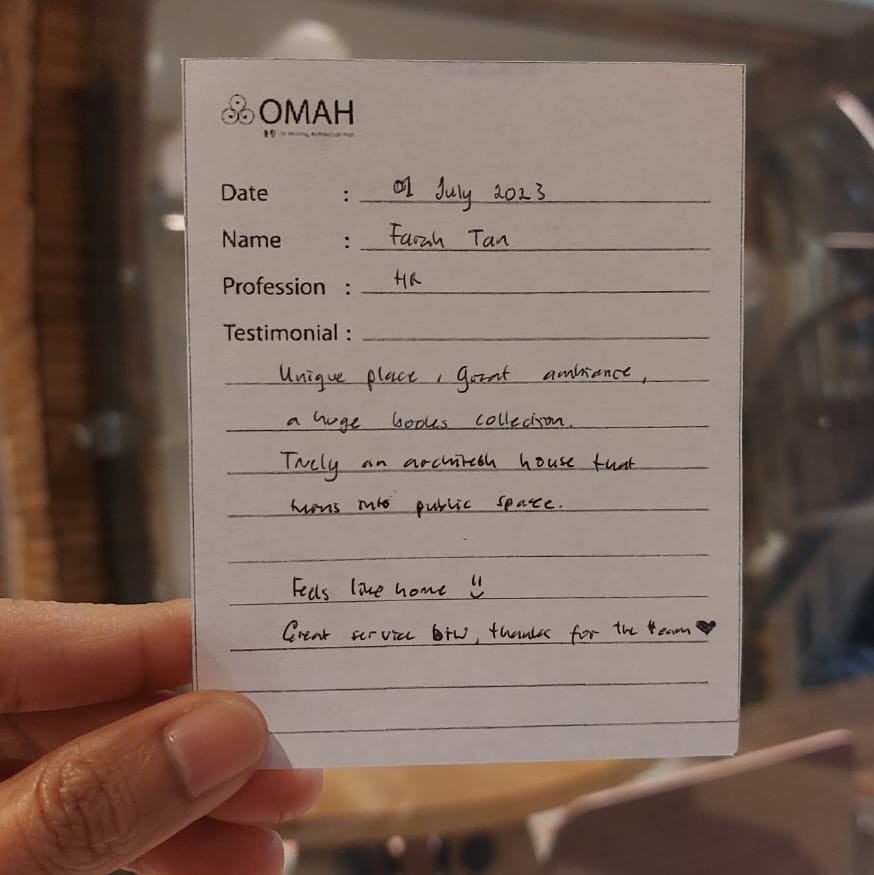 OMAH
Date : 01 July 2023
Name : Farah Tan
Profession : HR
Testimonial :
Unique place, great ambiance,
a huge books collection.
Truly an architech house that
turns into public space.
Feels like home
Great service btw, thanks for the team ♥